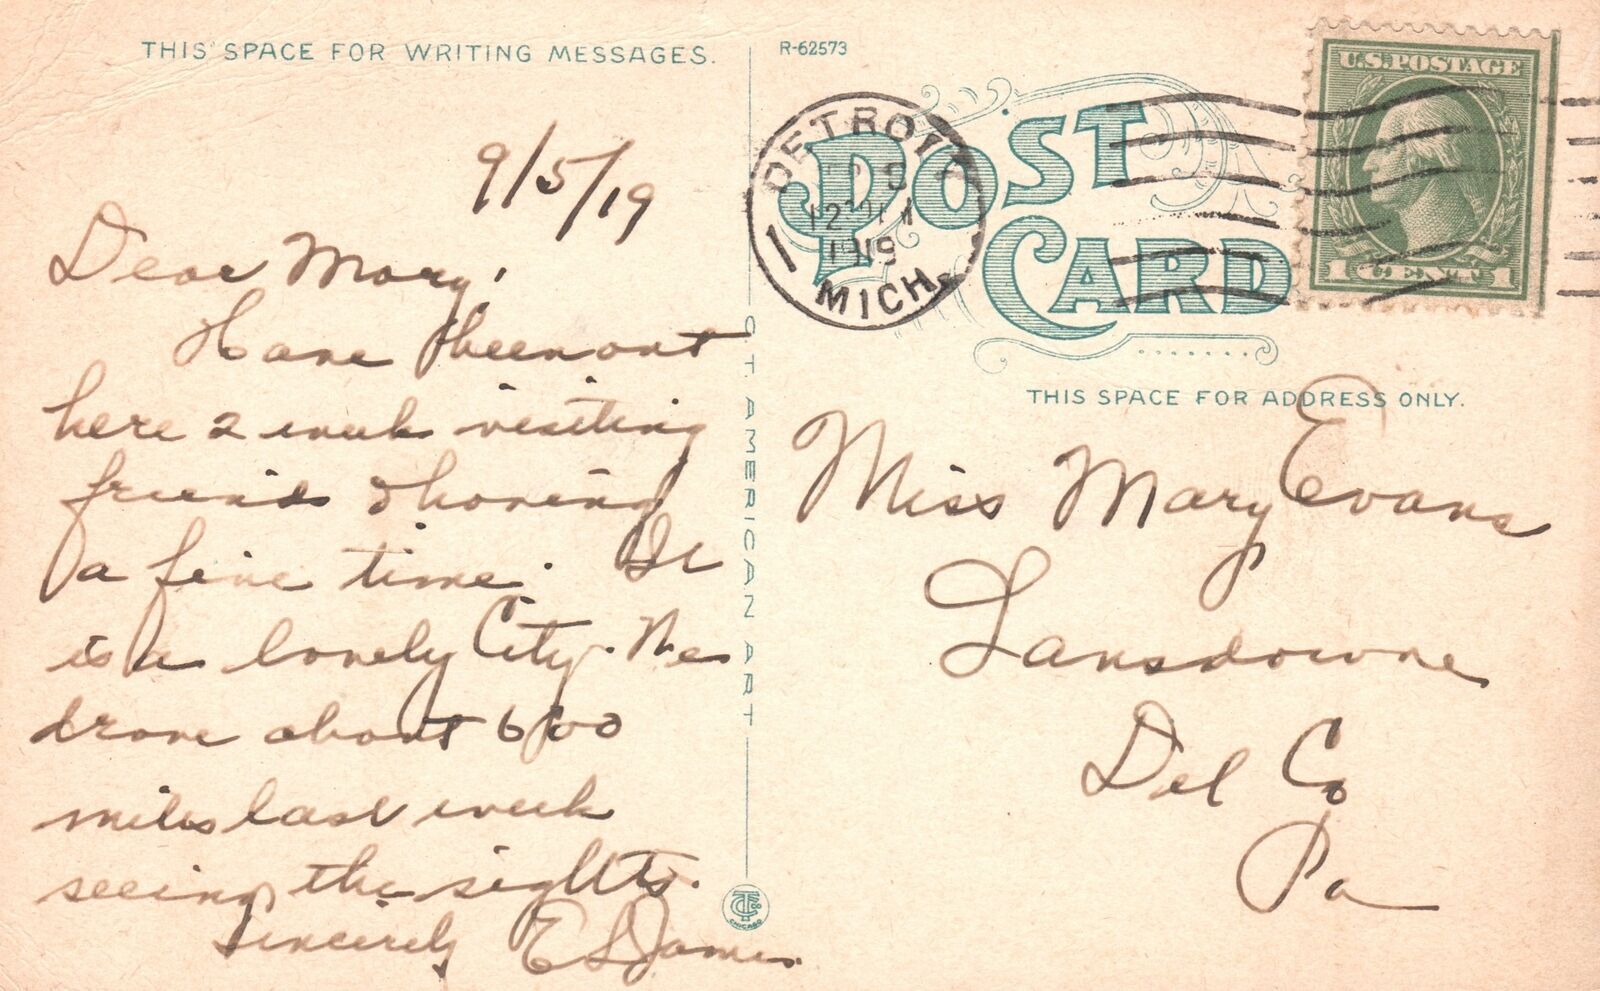 THIS SPACE FOR WRITING MESSAGES.
R-62573
U.S. POSTAGE
1 CENT 1
DETROIT
12
1919
MICH.
POST
CARD
THIS SPACE FOR ADDRESS ONLY.
C.T. AMERICAN ART
CHICAGO
9/5/19
Dear Mary,
Have been out
here 2 week visiting
friends & having
a fine time. It
is a lovely City. We
drove about 600
miles last week
seeing the sights.
Sincerely E James
Miss Mary Evans
Lansdowne
Del Co
Pa